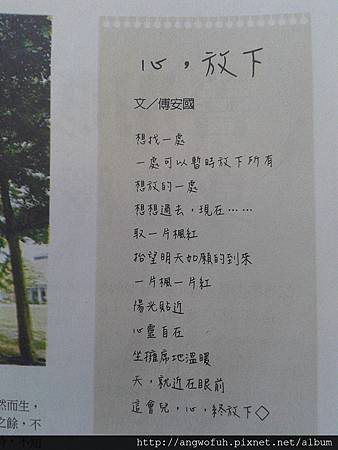 心，放下
文／傅安國
想找一處
一處可以暫時放下所有
想放的一處
想想過去，現在……
取一片楓紅
抬望明天如願的到來
一片楓一片紅
陽光貼近
心靈自在
坐擁席地溫暖
天，就近在眼前
這會兒，心，終放下◇
然而生，
之餘，不
http://angwofuh.pixnet.net/album